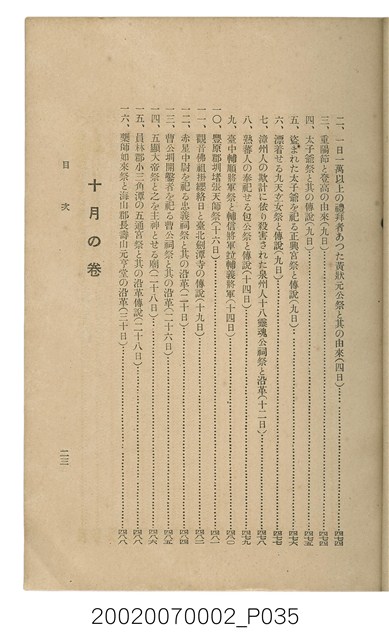 二、一日一萬以上の禮拜者あつた黃狀元公祭と其の由來(四日)……四七四
三、重陽節と登高の由來(九日)……四七四
四、太子爺祭と其の傳說(九日)……四七五
五、盜まれた太子爺を祀る正興宮祭と傳說(九日)……四七六
六、漂着せる九天玄女祭と傳說(九日)……四七七
七、漳州人の欺計に依り殺害された泉州人十八靈魂公祠祭と沿革(十二日)……四七八
八、熟蕃人の奉祀せる包公祭と傳說(十四日)……四七九
九、臺中輔順將軍祭と輔信將軍竝輔義將軍(十四日)……四八〇
一〇、豐原郡圳堵張天師祭(十六日)……四八一
一一、觀音佛祖掛纓絡日と臺北劍潭寺の傳說(十九日)……四八二
一二、赤星中尉を祀る忠義祠祭と其の沿革(二十日)……四八四
一三、曹公圳開鑿者を祀る曹公祠祭と其の沿革(二十六日)……四八五
一四、五顯大帝祭と之を主神とせる廟(二十八日)……四八六
一五、員林郡小三角潭の五通宮祭と其の沿革傳說(二十八日)……四八八
一六、藥師如來祭と海山郡長壽山元亨堂の沿革(三十日)……四八八
十月の卷
目次
二三
20020070002_P035